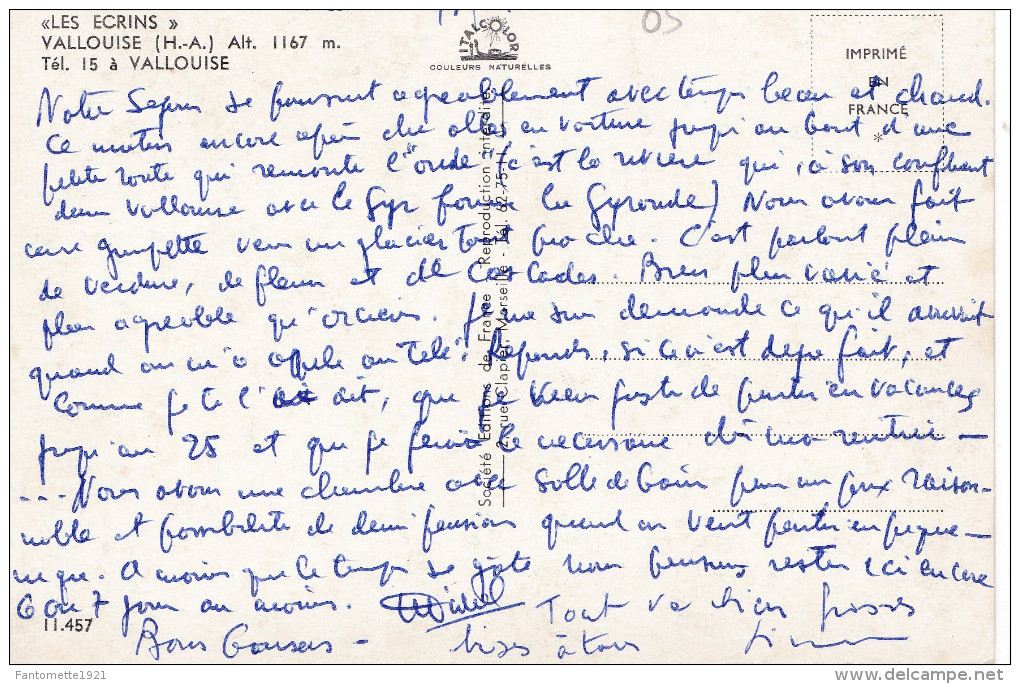 «LES ECRINS »
VALLOUISE (H.-A.) Alt. 1167 m.
Tél. 15 à VALLOUISE
ITALCOLOR
COULEURS NATURELLES
05
IMPRIMÉ
EN
FRANCE
*
Société Editions de France - Reproduction interdite
2, rue Clapier, Marseille - Tél. 62-75-
Notre séjour se poursuit agréablement avec temps beau et chaud.
Ce matin encore en voiture jusqu'au bout d'une
petite route qui remonte l'"onde" (c'est la rivière qui, à son confluent
dans Vallouise avec le Gyr forme la Gyronde) Nous avons fait
une grimpette vers un glacier tout proche. C'est partout plein
de verdure, de fleurs et de cascades. Bien plus varié et
plus agréable qu'orcières. Je me suis demandé ce qu'il arrivait
quand on m'a appelé au "Télé". Réponds, si ce n'est déjà fait, et
comme je te l'ai dit, que je viens juste de partir en vacances
jusqu'au 25 et que je ferai le nécessaire dès ma rentrée —
... Nous avons une chambre avec salle de bain pour un prix raison-
nable et possibilité de demi pension quand on veut partir en pique-
nique. A moins que le temps se gâte nous pensons rester ici encore
6 ou 7 jours au moins. Tout va bien grosses
11.457
Bons baisers — bises à tous
Fantomette1921
delcampe.net